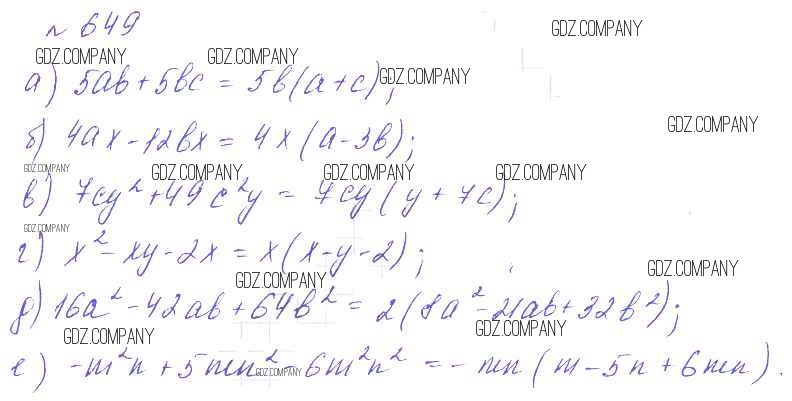 № 649
GDZ.COMPANY
GDZ.COMPANY GDZ.COMPANY GDZ.COMPANY
а) 5ab + 5bc = 5b(a + c);
GDZ.COMPANY
б) 4ax - 12bx = 4x(a - 3b);
GDZ.COMPANY GDZ.COMPANY GDZ.COMPANY GDZ.COMPANY
в) 7cy² + 49c²y = 7cy(y + 7c);
GDZ.COMPANY
г) x² - xy - 2x = x(x - y - 2);
GDZ.COMPANY GDZ.COMPANY
д) 16a² - 42ab + 64b² = 2(8a² - 21ab + 32b²);
GDZ.COMPANY GDZ.COMPANY
е) -m²n + 5mn² - 6m²n² = -mn(m - 5n + 6mn).
GDZ.COMPANY